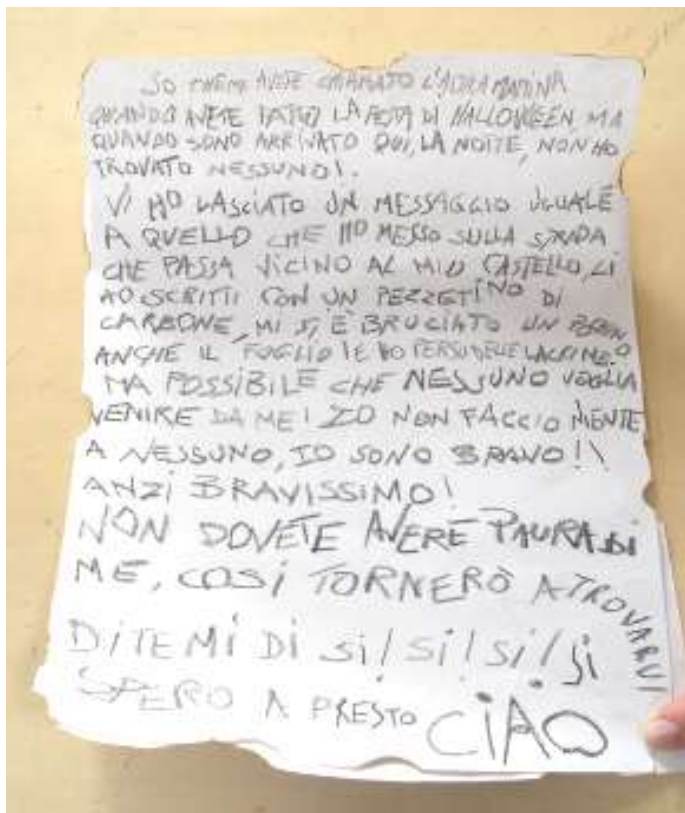 SO CHE MI AVETE CHIAMATO L'ALTRA MATTINA
QUANDO AVETE FATTO LA FESTA DI HALLOWEEN, MA
QUANDO SONO ARRIVATO QUI, LA NOTTE, NON HO
TROVATO NESSUNO!.
VI HO LASCIATO UN MESSAGGIO UGUALE
A QUELLO CHE HO MESSO SULLA STRADA
CHE PASSA VICINO AL MIO CASTELLO, LI
HO SCRITTI CON UN PEZZETINO DI
CARBONE, MI SI È BRUCIATO UN
ANCHE IL FOGLIO E HO PERSO DELLE LACRIME.
MA POSSIBILE CHE NESSUNO VOGLIA
VENIRE DA ME! IO NON FACCIO NIENTE
A NESSUNO, IO SONO BRAVO!!
ANZI BRAVISSIMO!
NON DOVETE AVERE PAURA DI
ME, COSÌ TORNERÒ A TROVARVI
DITEMI DI SI! SI! SI! SI
SPERO A PRESTO CIAO